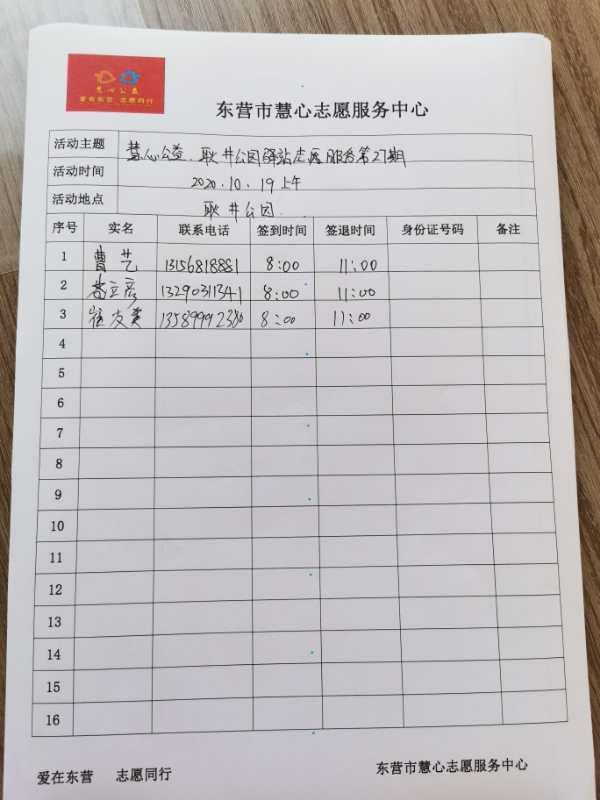 慧心公益
爱在东营 志愿同行
东营市慧心志愿服务中心
活动主题 慧心公益.耿井公园驿站志愿服务第27期
活动时间 2020.10.19上午
活动地点 耿井公园
序号 实名 联系电话 签到时间 签退时间 身份证号码 备注
1 曹艺 13156818881 8:00 11:00
2 立彦 13290311341 8:00 11:00
3 崔友美 13589992380 8:00 11:00
4
5
6
7
8
9
10
11
12
13
14
15
16
爱在东营 志愿同行 东营市慧心志愿服务中心